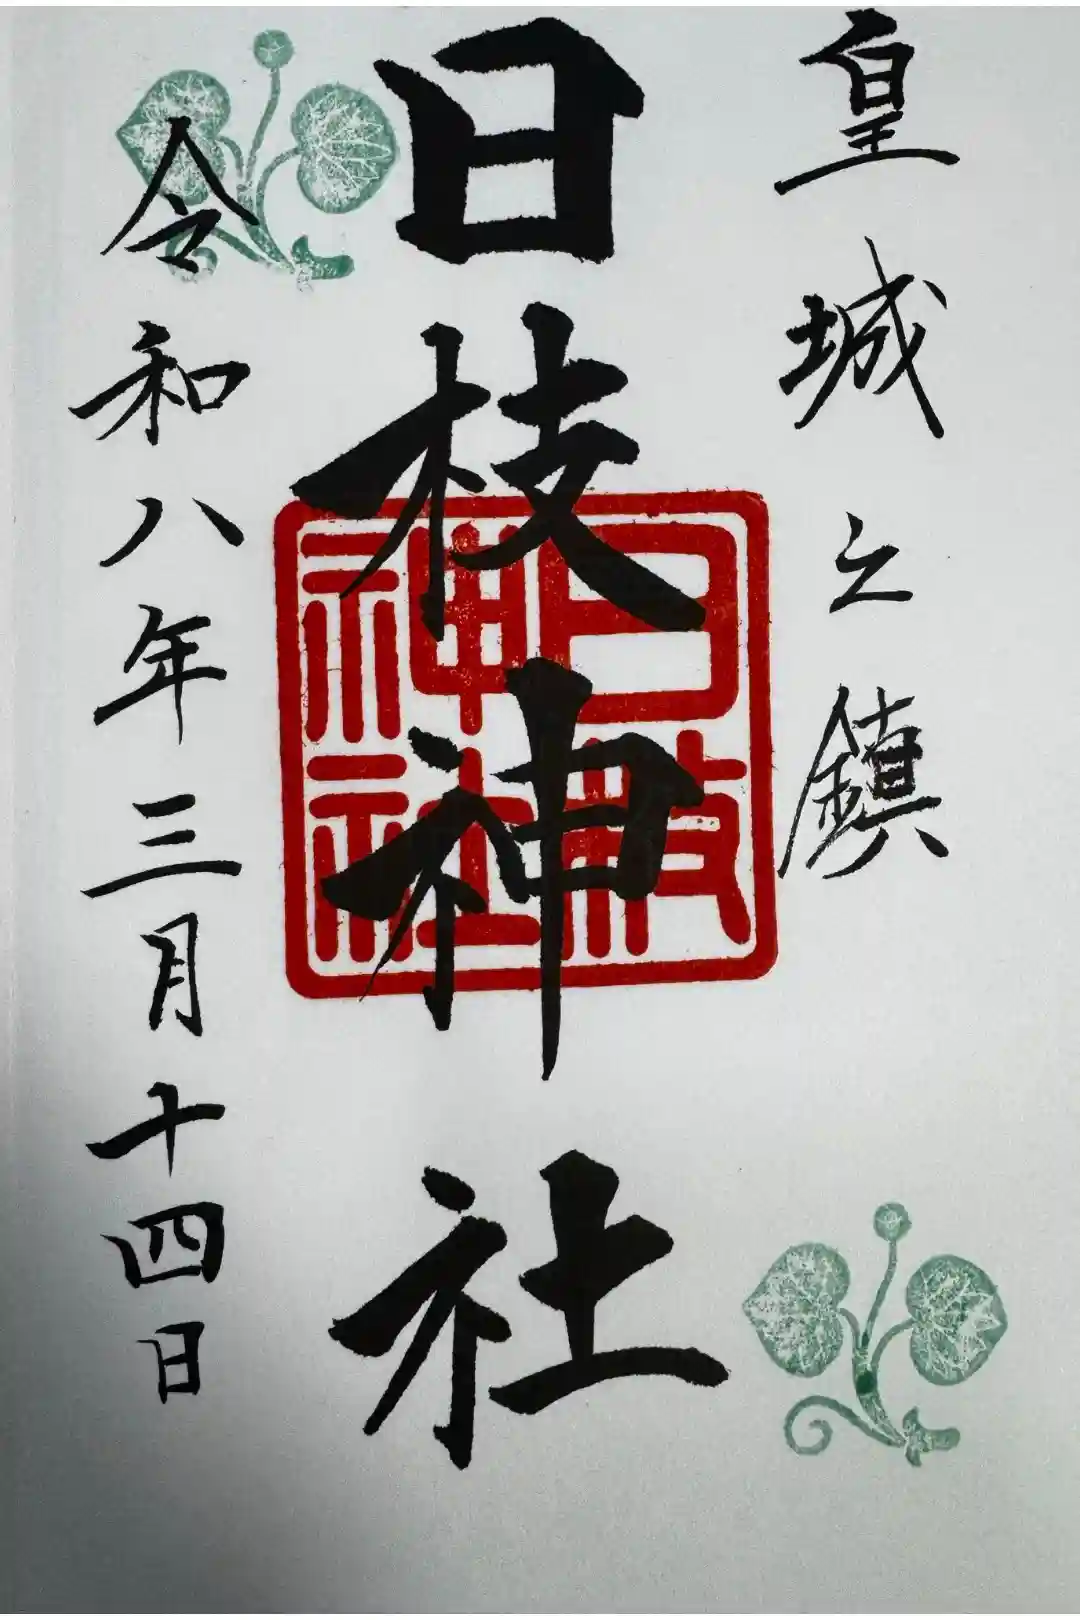 皇城之鎮
日枝神社
日枝神社
令和八年三月十四日